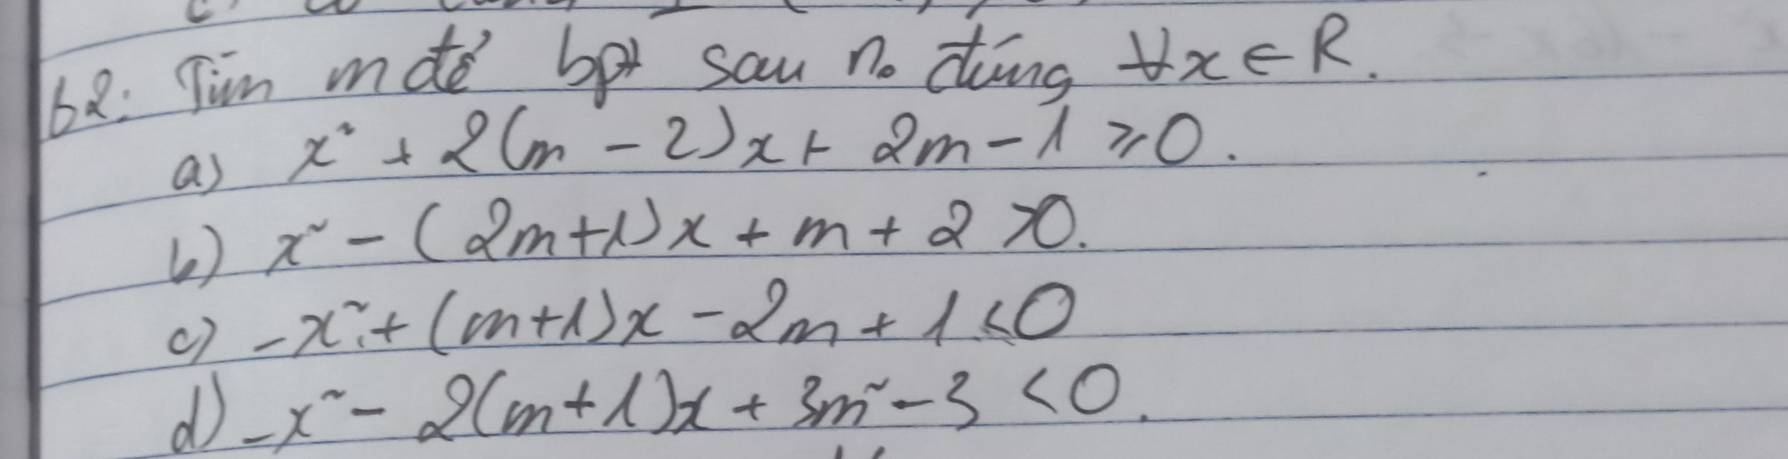 b2: Tìm m để bpt sau no đúng ∀x ∈ R.
a) x² + 2(m - 2)x + 2m - 1 ≥ 0.
b) x² - (2m+1)x + m + 2 > 0.
c) -x² + (m+1)x - 2m + 1 < 0
d) -x² - 2(m+1)x + 3m² - 3 < 0.